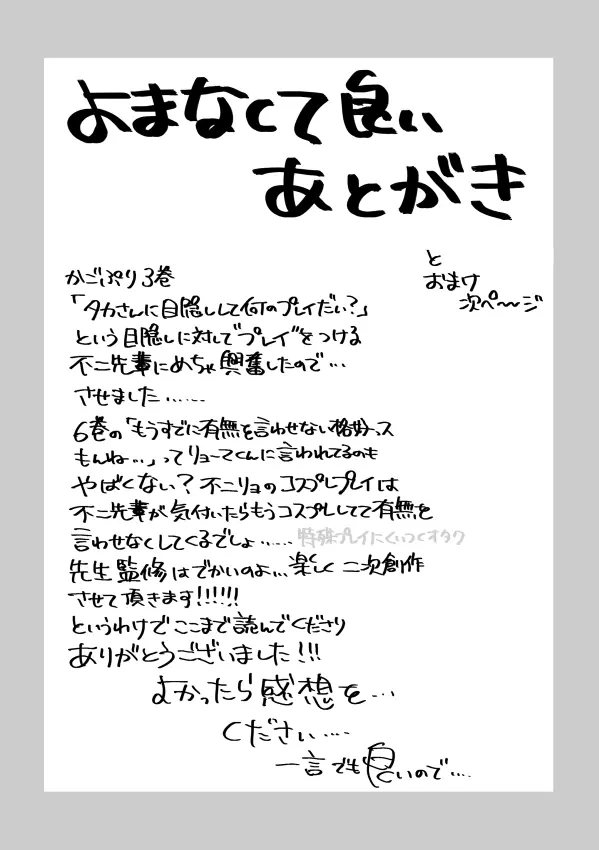 よまなくて良い
あとがき
と
おまけ
次ペ〜〜ジ
かごぷり3巻
「タカさんに目隠しして何のプレイだい?」
という目隠しに対して"プレイ"をつける
不二先輩にめちゃ興奮したので…
させました……
6巻の「もうすでに有無を言わせない格好っス
もんね…」ってリョーマくんに言われてるのも
やばくない?不二リョのコスプレプレイは
不二先輩が気付いたらもうコスプレしてて有無を
言わせなくしてくるでしょ……特殊プレイにくいつくオタク
先生監修はでかいのよ…楽しく二次創作
させて頂きます!!!!!!
というわけでここまで読んでくださり
ありがとうございました!!!
よかったら感想を…
ください…
一言でも良いので…